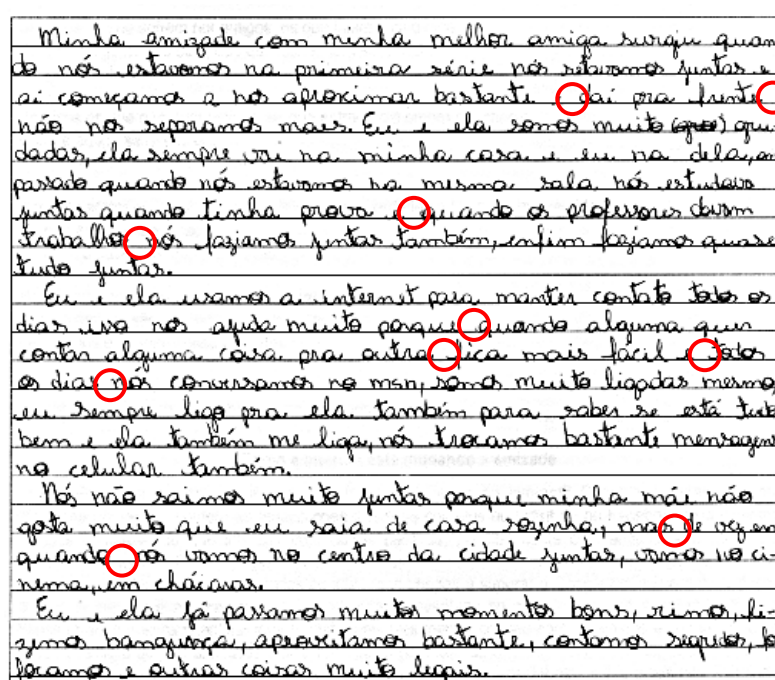 Minha amizade com minha melhor amiga surgiu quan
do nós estavamos na primeira série nós estavamos juntas e
ai começamos a nos aproximar bastante dai pra frente
não nos separamos mais. Eu e ela somos muito gru
dadas, ela sempre vai na minha casa e eu na dela, an
passado quando nós estavamos na mesma sala nós estudava
juntas quando tinha prova e quando os professores davam
trabalho nós faziamos juntas também, enfim faziamos quase
tudo juntas.
Eu e ela usamos a internet para manter contato todos os
dias isso nos ajuda muito porque quando alguma quer
contar alguma coisa pra outra fica mais fácil e todos
os dias nós conversamos no msn, somos muito ligadas mesmo
eu sempre ligo pra ela também para saber se está tudo
bem e ela também me liga, nós trocamos bastante mensagens
no celular também.
Nós não saimos muito juntas porque minha mãe não
gosta muito que eu saia de casa sozinha, mas de vez em
quando nós vamos no centro da cidade juntas, vamos no ci-
nema, em chácaras.
Eu e ela já passamos muitos momentos bons, rimos, fi-
zemos bangunça, aproveitamos bastante, contamos segredos, fo
focamos e outras coisas muito legais.